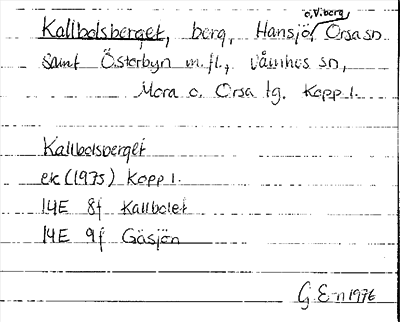 o. V. berg,
Kallbolsberget, berg, Hansjö, Orsa sn
samt Österbyn m. fl., Våmhus sn,
Mora o. Orsa tg. Kopp l.
Kallbolsberget
ek (1975) Kopp l.
14E 8f Kallbolet
14E 9f Gåsjön
G E-n 1976